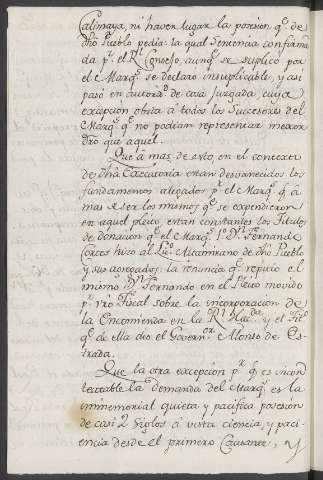 Calimaya, ni haver lugar la posesion q.e de
dho Pueblo pedia: la qual Sentencia confirma
da p.r el R.l Consejo, aunq.e se suplicó por
el Marq.s se declaró insuplicable, y asi
pasó en autorid.d de cosa Juzgada, cuya
excepcion obsta á todos los Successores del
Marq.s q.e no podian representar mexor
dro que aquel.
Que á mas de esto en el contexto
de dha Executoria estan desvanecidos los
fundamentos alegados p.r el Marq.s q.e á
mas de ser los mismos q.e se expendieron
en aquel pleito, estan constantes los Titulos
de donacion q.e el Marq.s 1.o D.n Fernando
Cortes hizo al Lic.o Altamirano de dho Pueblo
y sus agregados: la renuncia q.e repitió el
mismo D.n Fernando en el Pleito movido
p.r ntro Fiscal sobre la incorporacion de
la Encomienda en la R.l y el Tit.o
q.e de ella dio el Govern.or Alonso de Es-
trada.
Que la otra excepcion p.r q.e es incon
textable la demanda del Marq.s es la
inmemorial quieta y pacifica posesion
de casi 2 Siglos á vista ciencia, y paci-
encia desde el primero Causante, y